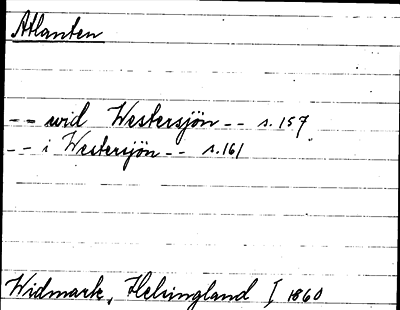 Atlanten
-- wid Westersjön -- s. 157
-- i Westersjön -- s. 161
Widmark, Helsingland I 1860